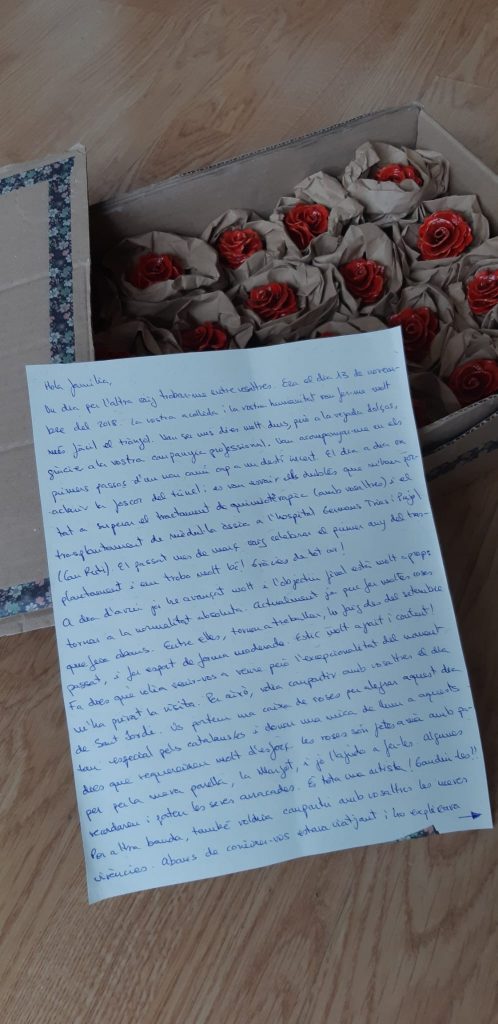 Hola família,
Un dia per l'altre vaig trobar-me entre vosaltres. Era el dia 13 de novem-
bre del 2018. La vostra acollida i la vostra humanitat van fer-me molt
més fàcil el tràngol. Van ser uns dies molt durs, però a la vegada dolços,
gràcies a la vostra companyia professional. Vau acompanyar-me en els
primers passos d'un nou camí cap a un destí incert. El dia a dia va
aclarir la foscor del túnel i es van esvair els dubtes que m'han por-
tat a superar el tractament de quimioteràpia (amb vosaltres) i el
trasplantament de medul·la òssia a l'hospital Germans Trias i Pujol
(Can Ruti). El passat mes de març vaig celebrar el primer any del tras-
plantament i em trobo molt bé! Gràcies de tot cor!
A dia d'avui ja he avançat molt i l'objectiu final està molt a prop:
tornar a la normalitat absoluta. Actualment ja puc fer moltes coses
que feia abans. Entre elles, tornar a treballar, ho faig des del setembre
passat, i fer esport de forma moderada. Estic molt agraït i content!
Fa dies que volia venir-vos a veure però l'excepcionalitat del moment
m'ha privat la visita. Per això, volia compartir amb vosaltres el dia
de Sant Jordi. Us portem una caixa de roses per alegrar aquest dia
tan especial pels catalans/es i donar una mica de llum a aquests
dies que requereixen molt d'esforç. Les roses són fetes a mà amb pa-
per per la meva parella, la Marjot, i jo l'ajudo a fer-les. Algunes
recordareu i porteu les seves arracades. És tota una artista! Gaudiu-les!!
Per altra banda, també voldria compartir amb vosaltres les meves
vivències. Abans de conèixer-vos estava viatjant i ho explicava